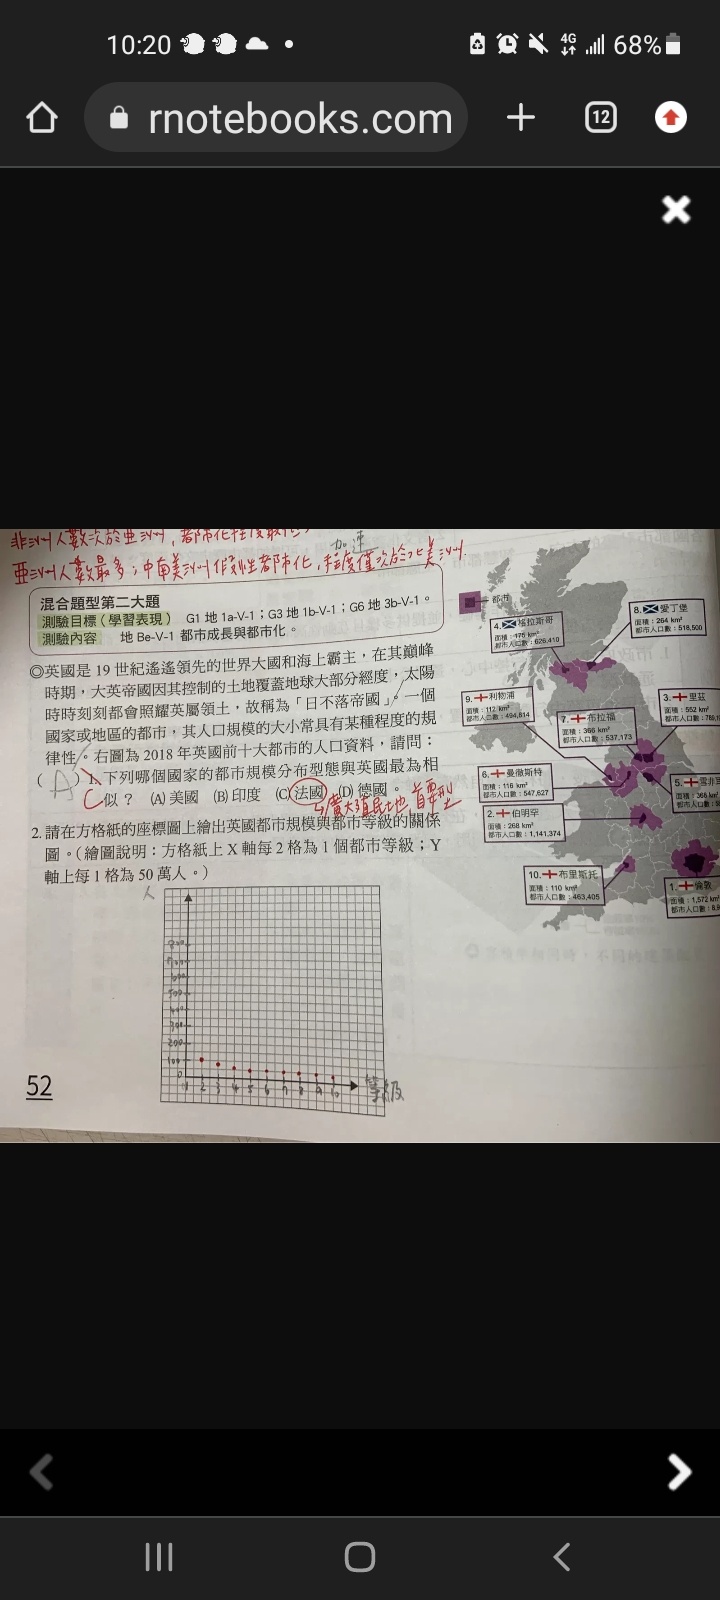 10:20
4G
68%
rnotebooks.com
12
亞洲人數最多；中南美洲假性都市化，程度僅次於北美洲.
加速
混合題型第二大題
測驗目標（學習表現） G1 地 1a-V-1；G3 地 1b-V-1；G6 地 3b-V-1。
測驗內容 地 Be-V-1 都市成長與都市化。
◎英國是 19 世紀遙遙領先的世界大國和海上霸主，在其巔峰
時期，大英帝國因其控制的土地覆蓋地球大部分經度，太陽
時時刻刻都會照耀英屬領土，故稱為「日不落帝國」。一個
國家或地區的都市，其人口規模的大小常具有某種程度的規
律性。右圖為 2018 年英國前十大都市的人口資料，請問：
（ A ）1. 下列哪個國家的都市規模分布型態與英國最為相
C 似？ (A) 美國 (B) 印度 (C) 法國 (D) 德國。
廣大殖民地 首要型
2. 請在方格紙的座標圖上繪出英國都市規模與都市等級的關係
圖。（繪圖說明：方格紙上 X 軸每 2 格為 1 個都市等級；Y
軸上每 1 格為 50 萬人。）
人
100
0
2 3 4 5 6 7 8 9 10
等級
52
都市
8. 愛丁堡
面積：264 km²
都市人口數：518,500
4. 格拉斯哥
面積：175 km²
都市人口數：626,410
9. 利物浦
面積：112 km²
都市人口數：494,814
3. 里茲
面積：552 km²
7. 布拉福
面積：366 km²
都市人口數：537,173
6. 曼徹斯特
面積：116 km²
都市人口數：547,627
5.
2. 伯明罕
面積：268 km²
都市人口數：1,141,374
10. 布里斯托
面積：110 km²
都市人口數：463,405
1. 倫敦
面積：1,572 km²